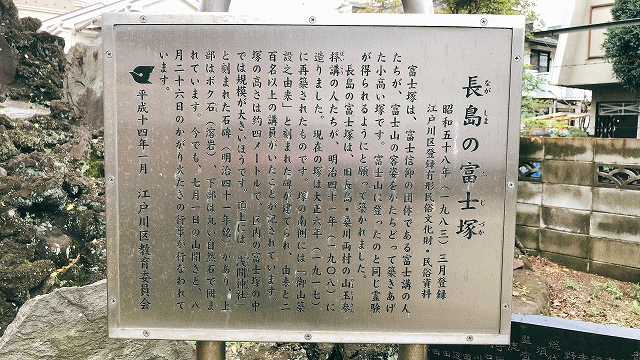 長島の富士塚
ながしま
ふじづか
昭和五十八年(一九八三)三月登録
江戸川区登録有形民俗文化財・民俗資料
富士塚は、富士信仰の団体である富士講の人
たちが、富士山の容姿をかたちどって築きあげ
た小高い塚です。富士山に登ったのと同じ霊験
が得られるようにと願って築かれました。
長島の富士塚は、旧長島・桑川両村の山玉参
拝講の人たちが、明治四十一年(一九〇八)に
造りました。現在の塚は大正六年(一九一七)
に再築されたものです。塚の南側には「御山築
設之由来」と刻まれた碑が建てられ、由来と二
百名以上の講員がいたことが記されています。
塚の高さは約四メートルで、区内の富士塚の中
では規模が大きいほうです。頂上には「浅間神社」
と刻まれた石碑(明治四十一年銘)があり、上
部はボク石(溶岩)、下部は丸い自然石で囲ま
れています。今でも、七月一日の山開きと、八
月二十六日のかがり火たきの行事が行なわれて
います。
平成十四年一月 江戸川区教育委員会